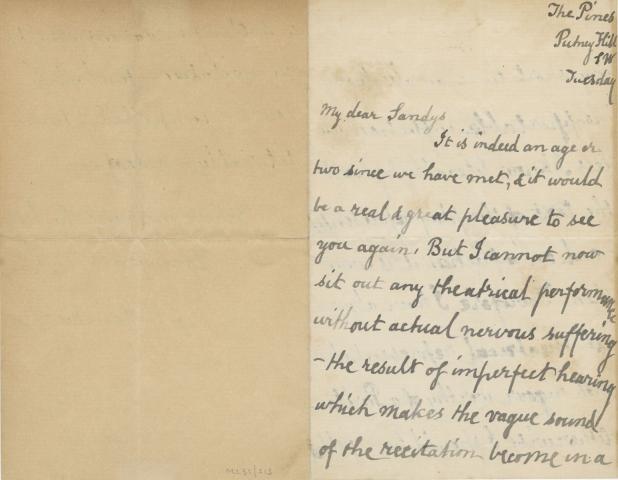 The Pines
Putney Hill
S W
Tuesday
My dear Sandys
It is indeed an age or
two since we have met, & it would
be a real & great pleasure to see
you again. But I cannot now
sit out any theatrical performance
without actual nervous suffering
– the result of imperfect hearing
which makes the vague sound
of the recitation become in a